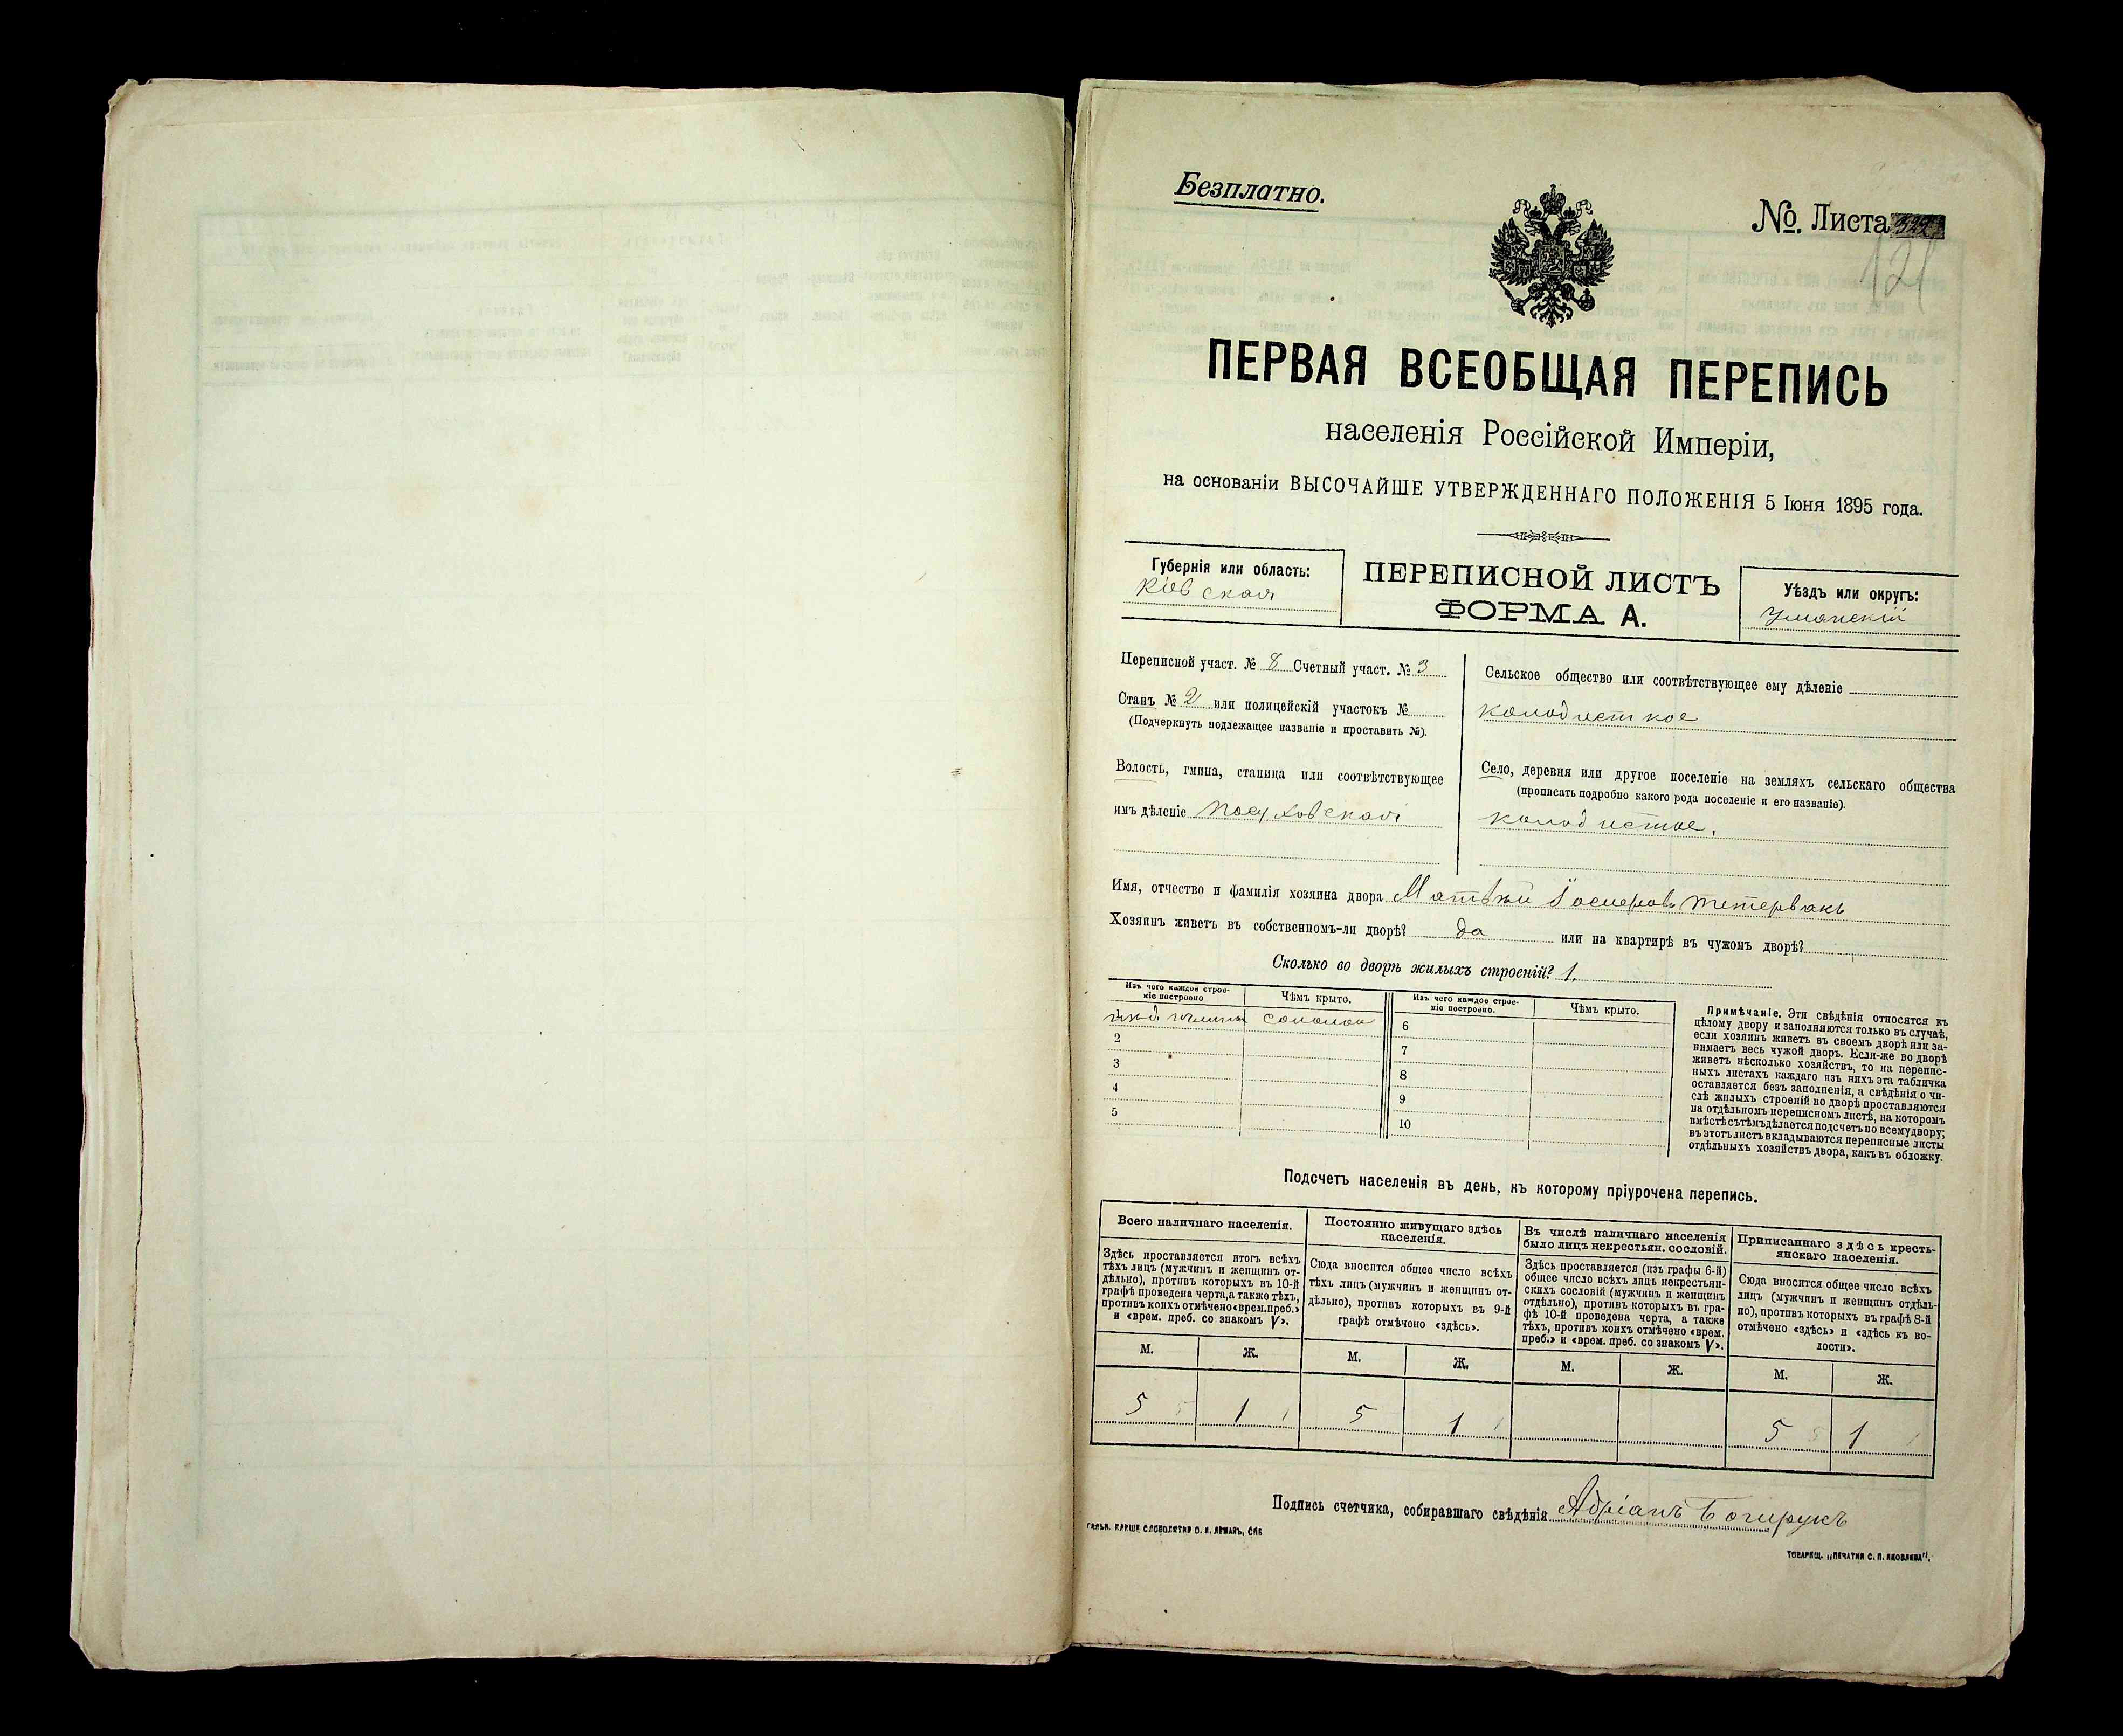 Безплатно.
№. Листа
121
ПЕРВАЯ ВСЕОБЩАЯ ПЕРЕПИСЬ
населенія Россійской Имперіи,
на основаніи ВЫСОЧАЙШЕ УТВЕРЖДЕННАГО ПОЛОЖЕНІЯ 5 Іюня 1895 года.
Губернія или область:
Кіевская
ПЕРЕПИСНОЙ ЛИСТЪ
ФОРМА А.
Уѣздъ или округъ:
Уманскій
Переписной участ. № 8 Счетный участ. № 3
Станъ № 2 или полицейскій участокъ №
(Подчеркнуть подлежащее названіе и проставить №).
Волость, гмина, станица или соотвѣтствующее
имъ дѣленіе
Сельское общество или соотвѣтствующее ему дѣленіе
колодисткое
Село, деревня или другое поселеніе на земляхъ сельскаго общества
(прописать подробно какого рода поселеніе и его названіе).
колодистое.
Имя, отчество и фамилія хозяина двора Матвѣй Тетервакъ
Хозяинъ живетъ въ собственномъ-ли дворѣ? да или на квартирѣ въ чужомъ дворѣ?
Сколько во дворѣ жилыхъ строеній? 1.
Изъ чего каждое строе-
ніе построено
Чѣмъ крыто.
Изъ чего каждое строе-
ніе построено.
Чѣмъ крыто.
глины соломой
2
3
4
5
6
7
8
9
10
Примѣчаніе. Эти свѣдѣнія относятся къ
цѣлому двору и заполняются только въ случаѣ,
если хозяинъ живетъ въ своемъ дворѣ или за-
нимаетъ весь чужой дворъ. Если-же во дворѣ
живетъ нѣсколько хозяйствъ, то на перепис-
ныхъ листахъ каждаго изъ нихъ эта табличка
оставляется безъ заполненія, а свѣдѣнія о чи-
слѣ жилыхъ строеній во дворѣ проставляются
на отдѣльномъ переписномъ листѣ, на которомъ
вмѣстѣ съ тѣмъ дѣлается подсчетъ по всему двору;
въ этотъ листъ вкладываются переписные листы
отдѣльныхъ хозяйствъ двора, какъ въ обложку.
Подсчетъ населенія въ день, къ которому пріурочена перепись.
Всего наличнаго населенія.
Здѣсь проставляется итогъ всѣхъ
тѣхъ лицъ (мужчинъ и женщинъ от-
дѣльно), противъ которыхъ въ 10-й
графѣ проведена черта, а также тѣхъ,
противъ коихъ отмѣчено «врем. преб.»
и «врем. преб. со знакомъ V».
Постоянно живущаго здѣсь
населенія.
Сюда вносится общее число всѣхъ
тѣхъ лицъ (мужчинъ и женщинъ от-
дѣльно), противъ которыхъ въ 9-й
графѣ отмѣчено «здѣсь».
Въ числѣ наличнаго населенія
было лицъ некрестьян. сословій.
Здѣсь проставляется (изъ графы 6-й)
общее число всѣхъ лицъ некрестьян-
скихъ сословій (мужчинъ и женщинъ
отдѣльно), противъ которыхъ въ гра-
фѣ 10-й проведена черта, а также
тѣхъ, противъ коихъ отмѣчено «врем.
преб.» и «врем. преб. со знакомъ V».
Приписаннаго здѣсь кресть-
янскаго населенія.
Сюда вносится общее число всѣхъ
лицъ (мужчинъ и женщинъ отдѣль-
но), противъ которыхъ въ графѣ 8-й
отмѣчено «здѣсь» и «здѣсь къ во-
лости».
М. Ж. М. Ж. М. Ж. М. Ж.
5 5 1 1 5 1 1 5 5 1 1
Подпись счетчика, собиравшаго свѣдѣнія Адріанъ
ТОВАРИЩ. „ПЕЧАТНЯ С. П. ЯКОВЛЕВА".